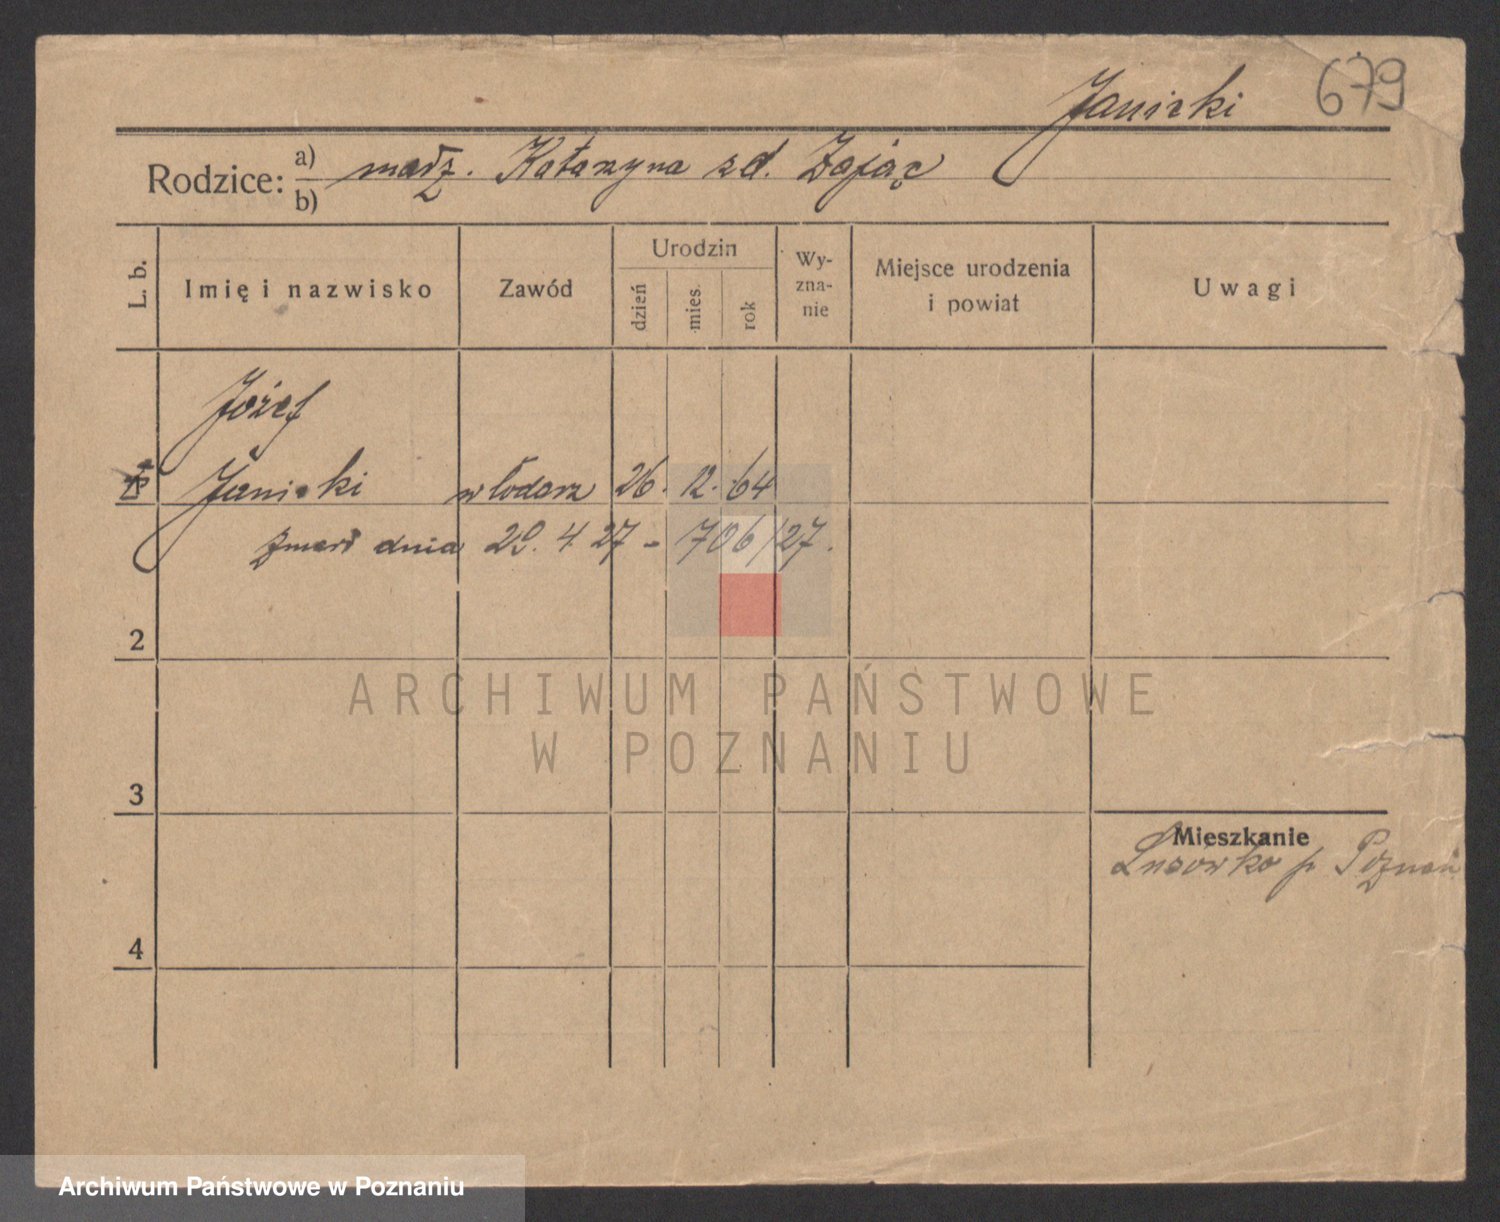 679
Janicki
Rodzice: a) małż. Katarzyna zd. Zając
b)
L. b. Imię i nazwisko Zawód Urodzin dzień mies. rok Wy-zna-nie Miejsce urodzenia i powiat Uwagi
Józef
Janicki włodarz 26. 12. 64
zmarł dnia 29. 4 27 - 706/27.
2
ARCHIWUM PAŃSTWOWE
W POZNANIU
3
Mieszkanie
Lusówko p. Poznań
4
Archiwum Państwowe w Poznaniu